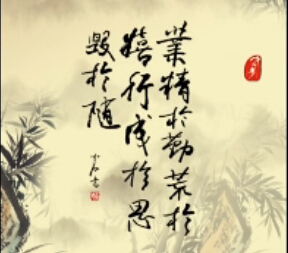 業精於勤荒於
嬉行成於思
毀於隨